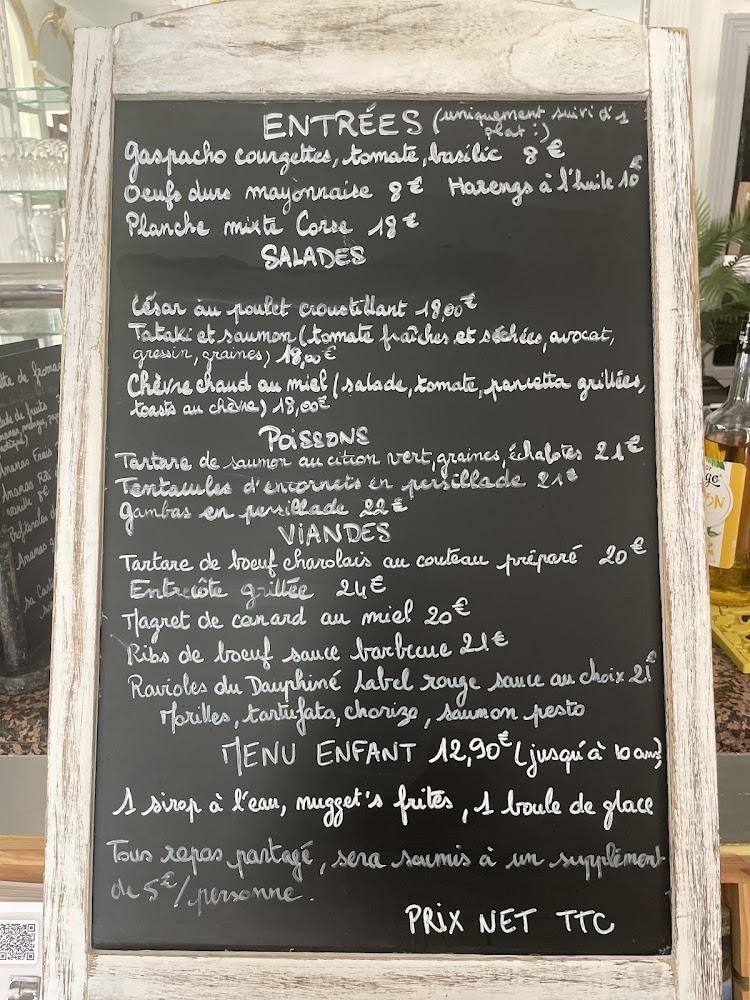 ENTRÉES (uniquement suivi d'1
plat :)
Gaspacho courgettes, tomate, basilic 8 €
Oeufs durs mayonnaise 8 € Harengs à l'huile 10 €
Planche mixte Corse 18 €
SALADES
César au poulet croustillant 18,00 €
Tataki et saumon (tomate fraîches et séchées, avocat,
gressin, graines) 18,00 €
Chèvre chaud au miel (salade, tomate, pancetta grillées,
toasts au chèvre) 18,00 €
POISSONS
Tartare de saumon au citron vert, graines, échalotes 21 €
Tentacules d'encornets en persillade 21 €
Gambas en persillade 22 €
VIANDES
Tartare de boeuf charolais au couteau préparé 20 €
Entrecôte grillée 24 €
Magret de canard au miel 20 €
Ribs de boeuf sauce barbecue 21 €
Ravioles du Dauphiné Label rouge sauce au choix 21 €
Morilles, tartufata, chorizo, saumon pesto
MENU ENFANT 12,90 € (jusqu'à 10 ans)
1 sirop à l'eau, nugget's frites, 1 boule de glace
Tous repas partagé, sera soumis à un supplément
de 5 €/personne.
PRIX NET TTC
de fruits
Ananas Frais